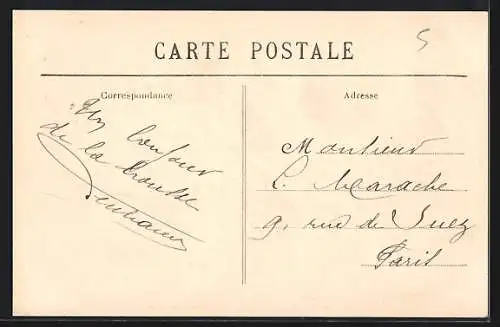 5
CARTE POSTALE
Correspondance
Un bonjour
de la brousse
Adresse
Monsieur
L. Marache
9, rue de Suez
Paris